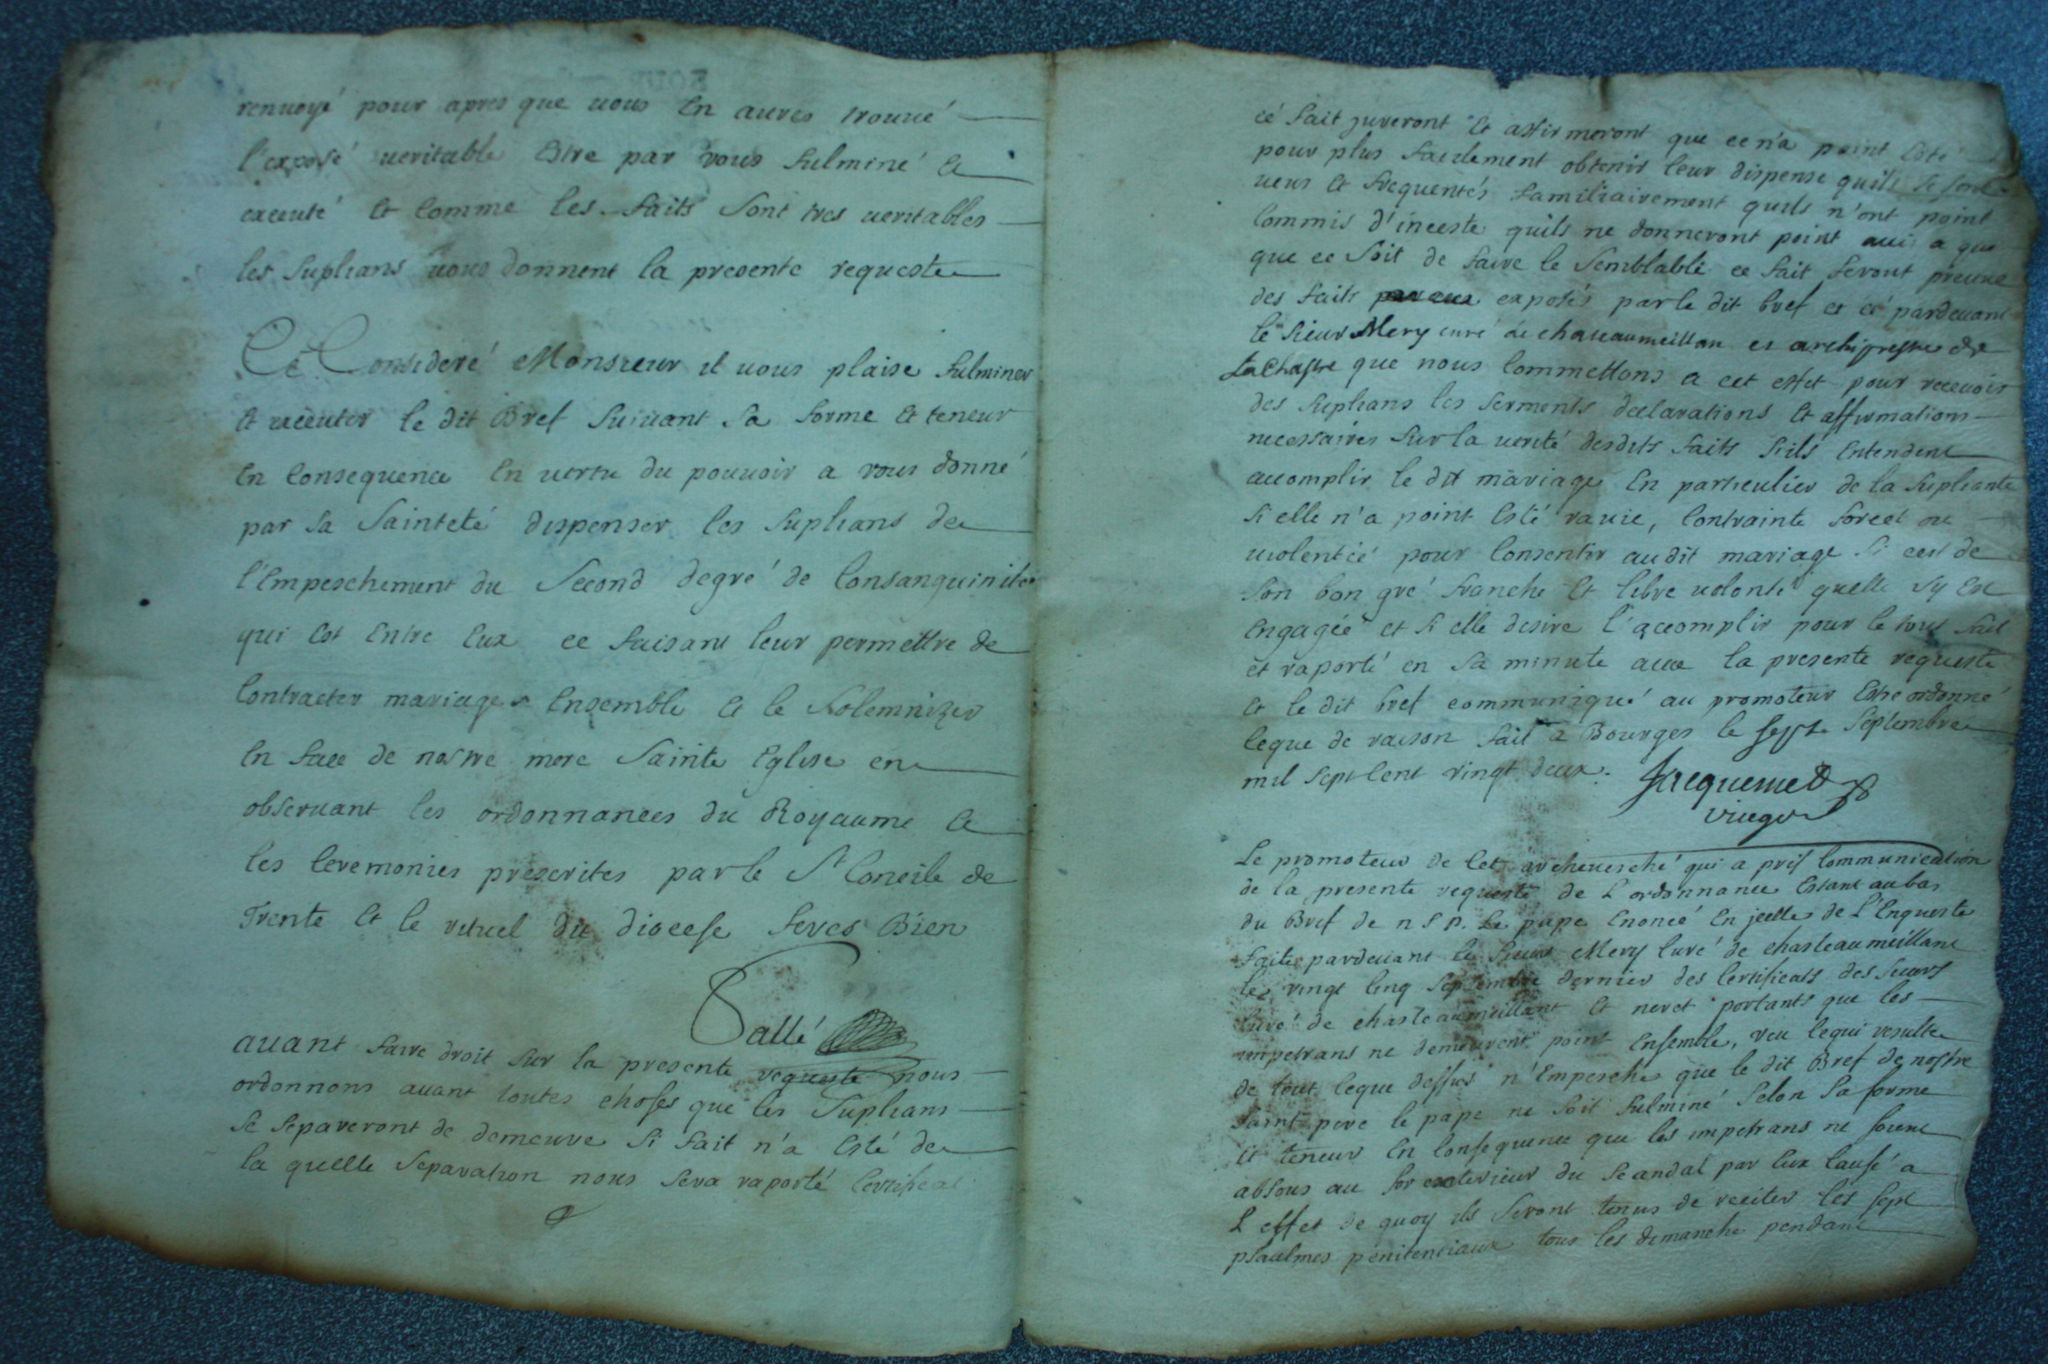 renvoyé pour apres que vous En aures trouué
l'exposé ueritable Estre par vous fulminé et
executé Et Comme les faits sont tres ueritables
les supliants uous donnent la presente requeste
Ce Consideré Monsieur il uous plaise fulminer
Et executer le dit Bref suiuant sa forme Et teneur
En Consequence En uertu du pouuoir a vous donné
par sa Sainteté dispenser les suplians de
l'Empeschement du Second degré de Consanguinité
qui Est Entre Eux ce faisant leur permettre de
Contracter mariage Ensemble Et le Solemnizer
En face de nostre mere Sainte Eglise en
obseruant les ordonnances du Royaume Et
les Ceremonies prescrites par le St Concile de
Trente Et le rituel du diocese feres Bien
Sallé
auant faire droit sur la presente requeste nous
ordonnons auant toutes choses que les suplians
se separeront de demeure si fait n'a Esté de
la quelle separation nous sera raporté Certificat
cé fait jureront Et affirmeront que ce n'a point Esté
pour plus facilement obtenir leur dispense quils se sont
ueus Et frequentés familiairement quils n'ont point
Commis d'inceste quils ne donneront point auis a qui
que ce soit de faire le semblable ce fait feront preuue
des faits par eux exposés par le dit bref et cé pardeuant
le sieur Mery curé de chateaumeillan et archiprestre de
La Chastre que nous Commettons a cet effet pour receuoir
des suplians les serments declarations Et affirmations
necessaires sur la uerité desdits faits s'ils Entendent
acomplir le dit mariage En particulier de la supliante
si elle n'a point Esté rauie, Contrainte forceé ou
uiolenteé pour Consentir audit mariage si cest de
son bon gré franche Et libre uolonté quelle sy Est
Engageé et si elle desire l'acomplir pour le tout fait
et raporté en sa minute auec la presente requeste
Et le dit bref communiqué au promoteur Estre ordonné
ceque de raison fait a Bourges le sept Septembre
mil sept Cent vingt deux.
Jacquemet
vicegt
Le promoteur de Cet archeuesché qui a pris Communication
de la presente requeste de L'ordonnance Estant au bas
du Bref de n S P. Le pape Enoncé En jcelle de L'Enqueste
faite pardeuant le sieur Mery Curé de chasteaumeillant
le vingt Cinq Septembre dernier des Certificats des sieurs
Curé de chasteaumeillant Et neret portants que les
impetrans ne demeurent point Ensemble, veu Cequi resulte
de tout Ceque dessus n'Empesche que le dit Bref de nostre
saint pere le pape ne soit fulminé selon sa forme
Et teneur En Consequence que les impetrans ne soient
absous au for exterieur du scandal par Eux Causé a
L'effet de quoy ils seront tenus de reciter les sept
psaulmes penitenciaux tous les dimanche pendant